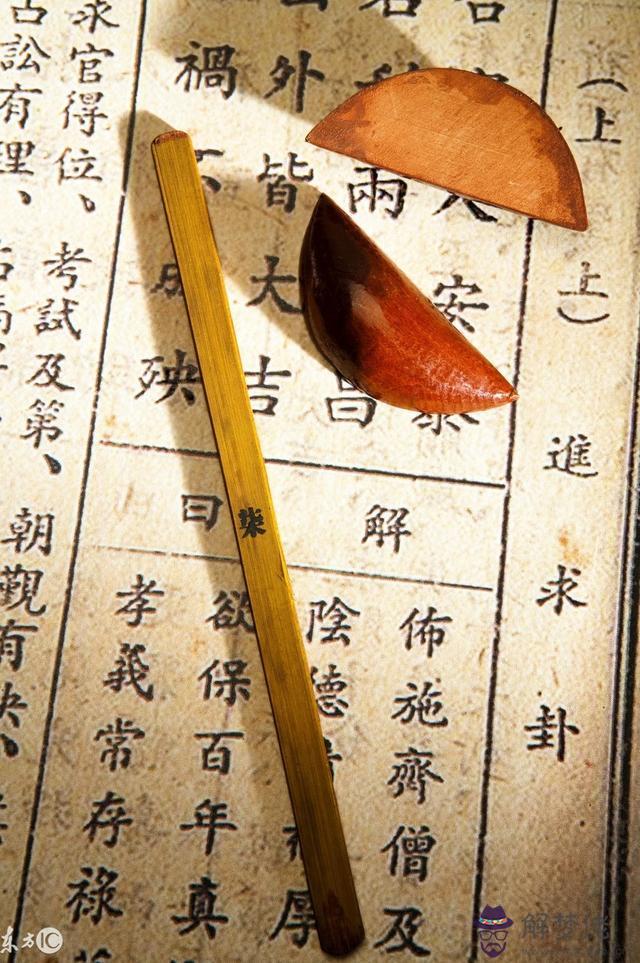 （上上）進求卦
人安泰
兩昌
外皆大吉
禍不成殃
解曰
佈施齊僧及
陰德厚
欲保百年真
孝義常存祿
求官得位、考試及第、朝觀有
占訟有理、
柒
东方IC
解梦佬